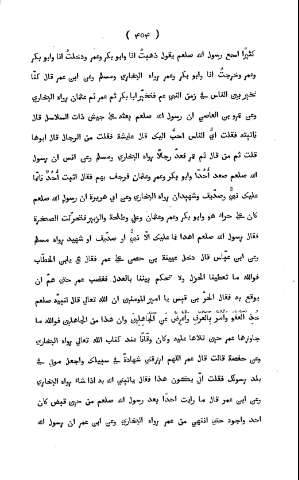 ( ٤٠٤ )
كثيرا اسمع رسول الله صلعم يقول ذهبت انا وابو بكر وعمر ودخلت انا وابو بكر
وعمر وخرجت انا وابو بكر وعمر رواه البخاري ومسلم وعن ابن عمر قال كنا
نخير بين الناس في زمن النبي عم فنخير ابا بكر ثم عمر ثم عثمان رواه البخاري
وعن عمرو بن العاصي ان رسول الله صلعم بعثه على جيش ذات السلاسل قال
فاتيته فقلت اي الناس احب اليك قال عائشة فقلت من الرجال قال ابوها
قلت ثم من قال ثم عمر فعد رجالا رواه البخاري ومسلم وعن انس ان رسول
الله صلعم صعد أُحُدًا وابو بكر وعمر وعثمان فرجف بهم فقال اثبت أُحُدُ فانما
عليك نبي وصديق وشهيدان رواه البخاري وعن ابي هريرة ان رسول الله صلعم
كان على حراء هو وابو بكر وعمر وعثمان وعلي وطلحة والزبير فتحركت الصخرة
فقال رسول الله صلعم اهدا فما عليك الا نبي او صديق او شهيد رواه مسلم
وعن ابن عباس قال دخل عيينة بن حصن على عمر فقال هي يابن الخطاب
فوالله ما تعطينا الجزل ولا تحكم بيننا بالعدل فغضب عمر حتى هم ان
يوقع به فقال الحر بن قيس يا امير المومنين ان الله تعالى قال لنبيه صلعم
خُذِ العَفْوَ وَأْمُرْ بِالعُرْفِ وَأَعْرِضْ عَنِ الجَاهِلِينَ وان هذا من الجاهلين فوالله ما
جاوزها عمر حين تلاها عليه وكان وقافا عند كتاب الله تعالى رواه البخاري
وعن حفصة قالت قال عمر اللهم ارزقني شهادة في سبيلك واجعل موتي في
بلد رسولك فقلت انى يكون هذا فقال ياتيني الله به اذا شاء رواه البخاري
وعن ابن عمر قال ما رايت احدا بعد رسول الله صلعم من حين قبض كان
احد واجود حتى انتهى من عمر رواه البخاري وعن ابن عمر ان رسول الله